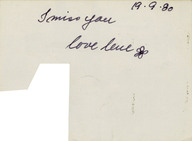 19.9.80
I miss you
love